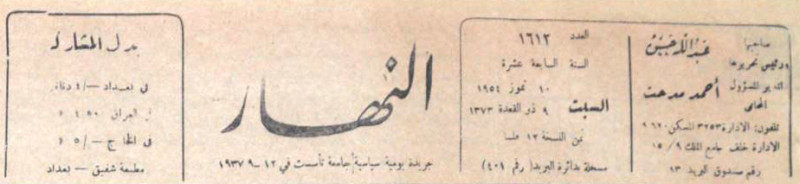 صاحبها
ورئيس تحريرها
عبد الله حسن
المدير المسؤول
المحامي
أحمد مدحت
تلفون: الادارة ٣٢٥٣ المسكن ٩٦٢٠
الادارة خلف جامع الملك ٩ / ١٥
رقم صندوق البريد ١٣
العدد ١٦١٢
السنة السابعة عشرة
السبت
١٠ تموز ١٩٥٤
٩ ذو القعدة ١٣٧٣
ثمن النسخة ١٢ فلسا
مسجلة بدائرة البريد (رقم ٤٠١)
النهار
جريدة يومية سياسية جامعة تأسست في ١٢ -٩ ١٩٣٧
بدل المشاركة
في بغداد -/٤ دنانير
في العراق ٤٫٥٠
في الخارج -/٥
مطبعة شفيق - بغداد